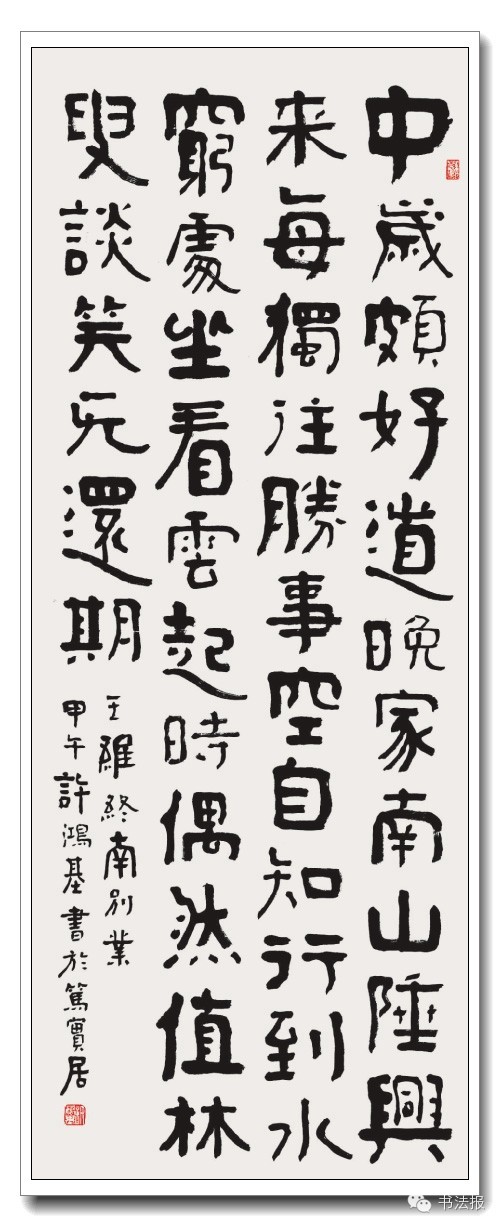 中歲頗好道晚家南山陲興
来每獨往勝事空自知行到水
窮處坐看雲起時偶然值林
叟談笑无還期
王維終南別業
甲午許鴻基書於篤實居
书法报